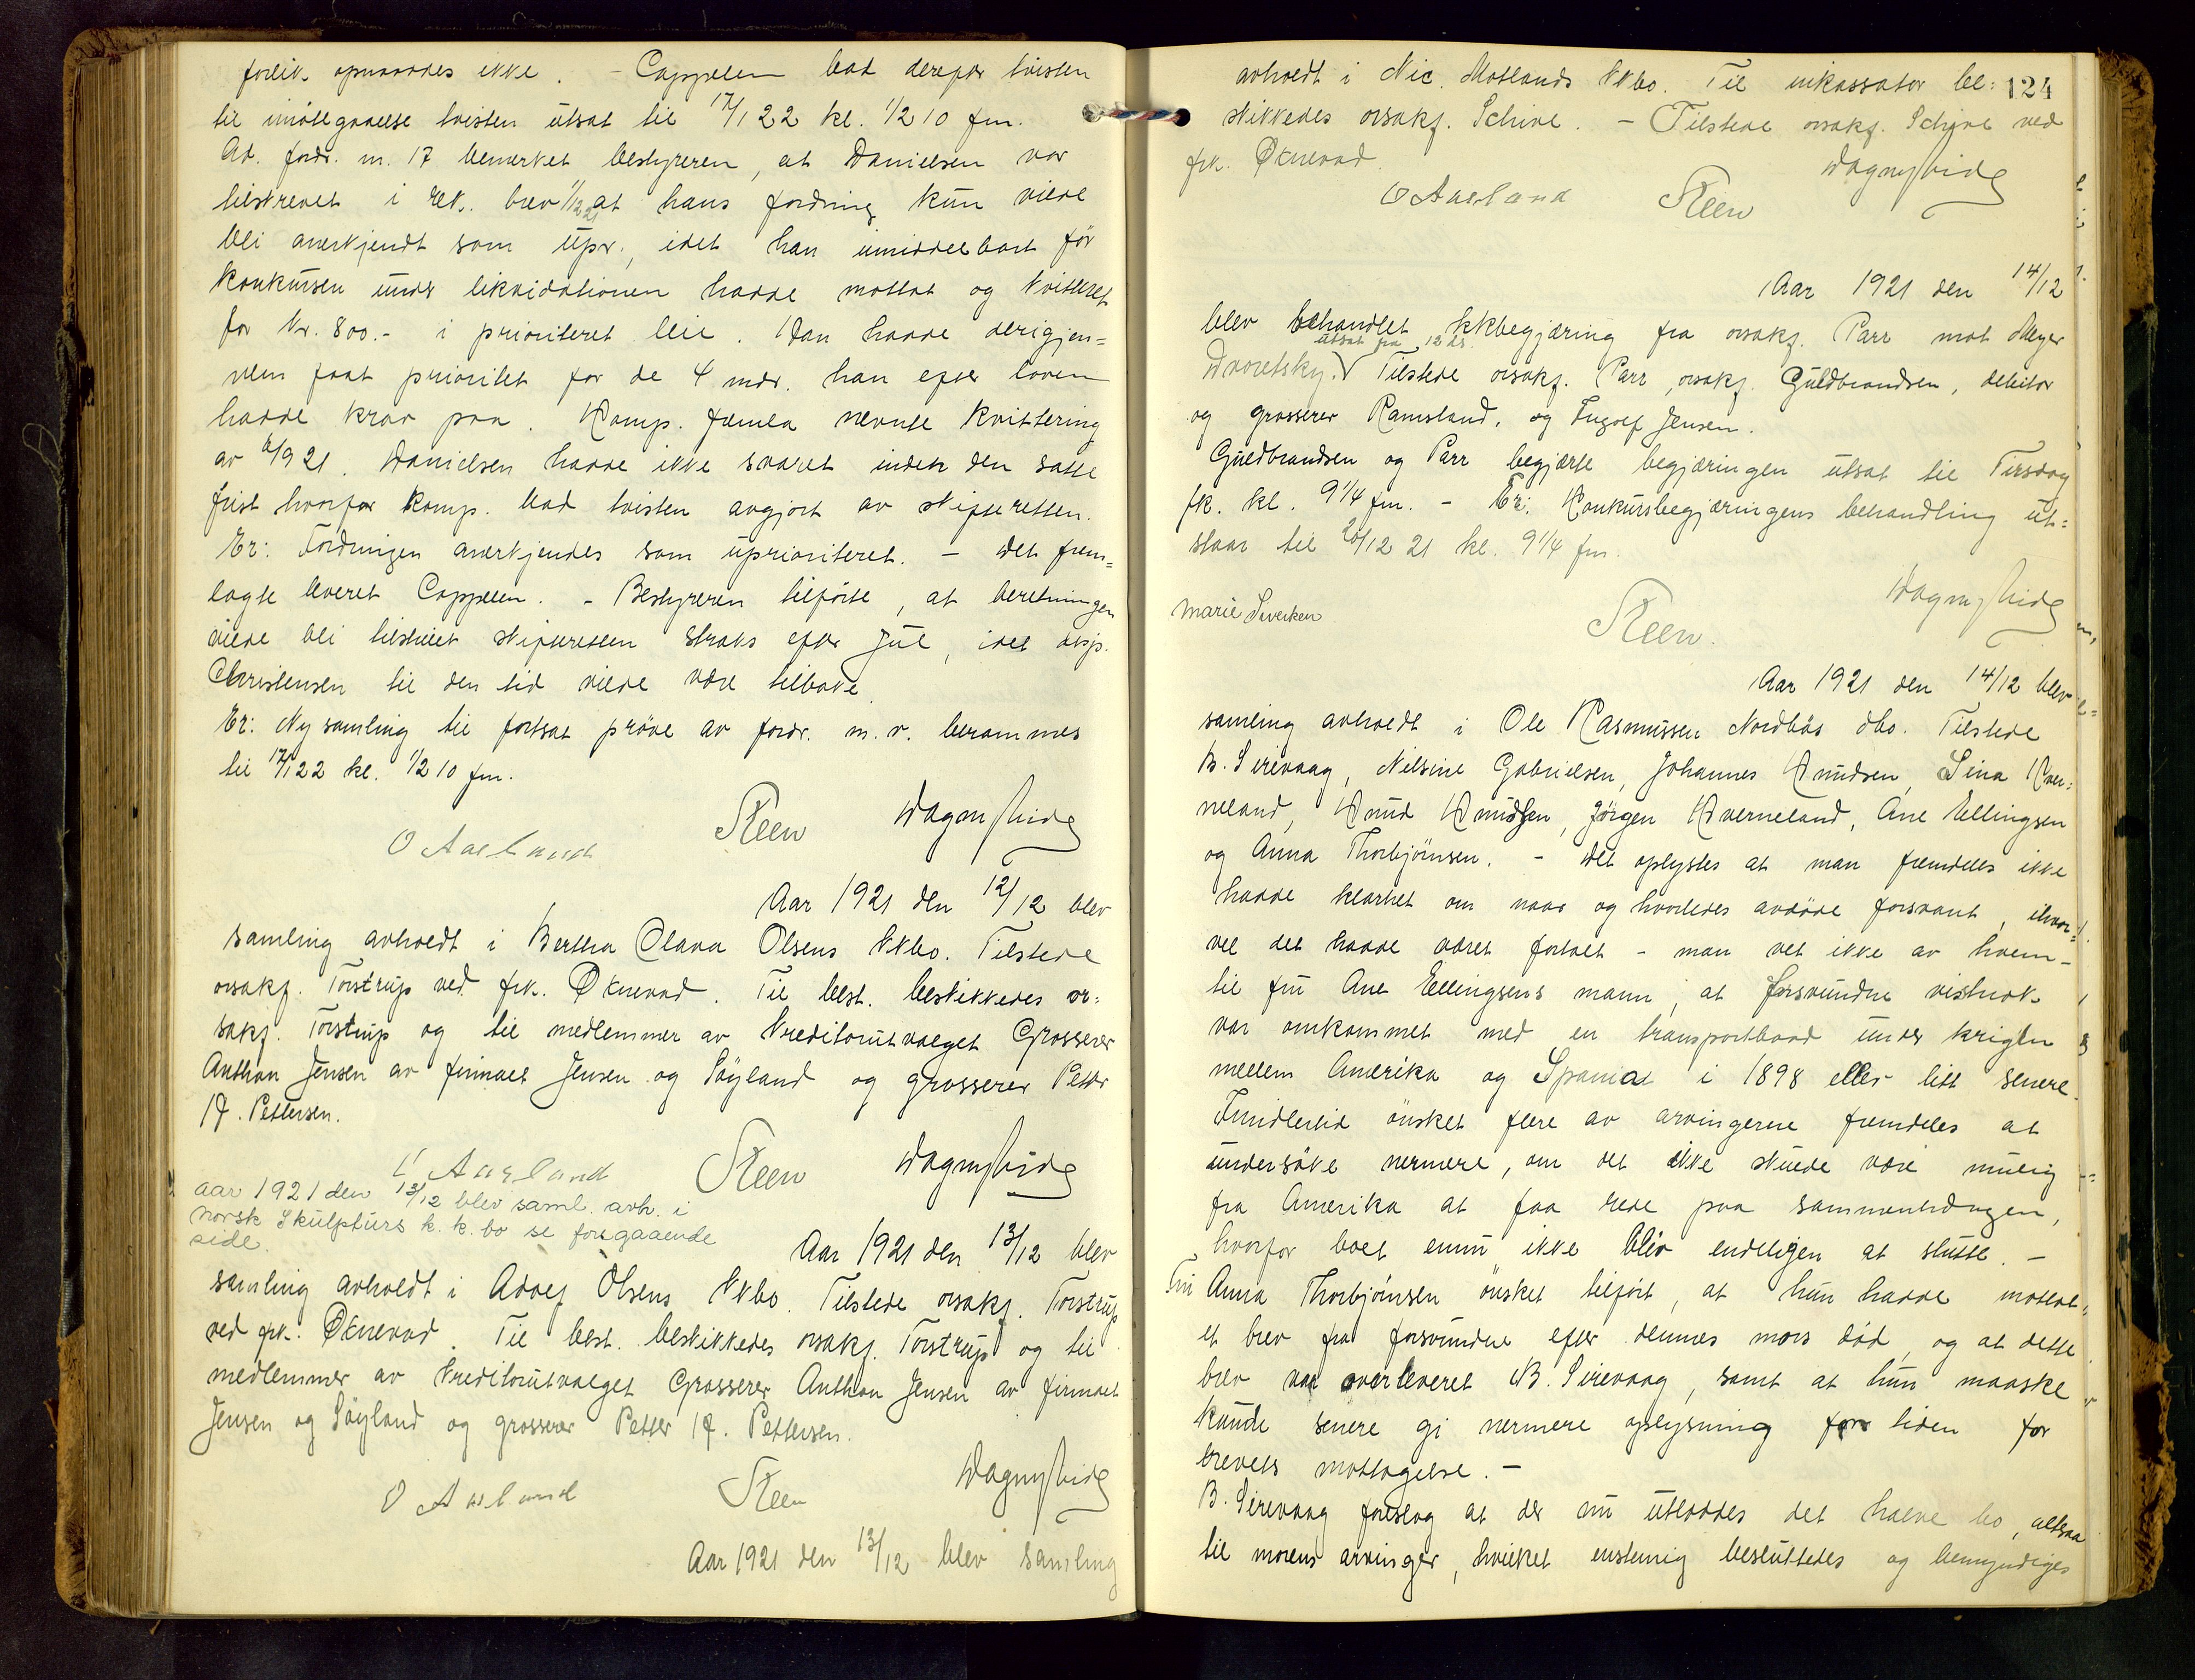 forlik opnaaddes ikke. - Cappelen bad derefter tvisten
til imøtegaaelse tvisten utsat til 17/1 22 kl. 1/2 10 fm.
Ad. fordr. nr. 17 bemerket bestyreren, at Danielsen var
tilskrevet i rek. brev 1/12 21 at hans fordring kun vilde
bli anerkjendt som upr., idet han umiddelbart før
konkursen under likvidationen hadde mottat og kvitteret
for kr. 800.- i prioriteret leie. Han hadde derigjen=
nem faat prioritet for de 4 mdr. han efter loven
hadde krav paa. Komp. fremla nevnte kvittering
av 6/9 21. Danielsen hadde ikke svaret inden den satte
frist hvorfor komp. bad tvisten avgjort av skifteretten.
Er: Fordringen anerkjendes som uprioriteret. - Det frem=
lagte leveret Cappelen. - Bestyreren tilførte, at beretningen
vilde bli tilstillet skifteretten straks efter jul, idet disp.
Christensen til den tid vilde være tilbake.
Er: Ny samling til fortsat prøve av fordr. m. v. berammes
til 17/1 22 kl. 1/2 10 fm.
O Aaeland Steen Dagny Eide
Aar 1921 den 12/12 blev
samling avholdt i Bertha Olava Olsens kkbo. Tilstede
orsakf. Torstrup ved frk. Øknevad. Til best. beskikkedes or=
sakf. Torstrup og til medlemmer av kreditorutvalget Grosserer
Anthon Jensen av firmaet Jensen og Søyland og grosserer Petter
A. Pettersen.
O Aaeland Steen Dagny Eide
Aar 1921 den 13/12 blev saml. avh. i
Norsk Skulpturs k.k.bo se foregaaende
side.
Aar 1921 den 13/12 blev
samling avholdt i Adolf Olsens kkbo. Tilstede orsakf. Torstrup
ved frk. Øknevad. Til best. beskikkedes orsakf. Torstrup og til
medlemmer av kreditorutvalget Grosserer Anthon Jensen av firmaet
Jensen og Søyland og grosserer Petter A. Pettersen.
O Aaeland Steen Dagny Eide
Aar 1921 den 13/12 blev samling
124
avholdt i Nic. Motlands kkbo. Til inkassator be=
skikkedes orsakf. Schive. - Tilstede orsakf. Schive ved
frk. Øknevad.
O Aaeland Steen Dagny Eide
Aar 1921 den 14/12
blev behandlet kkbegjæring fra orsakf. Parr mot Meyer
utsat fra 12 ds.
Dvoretsky. Tilstede orsakf. Parr, orsakf. Guldbrandsen, debitor
og grosserer Ramsland, og Ingolf Jensen.
Guldbrandsen og Parr begjærte begjæringen utsat til Tirsdag
fk. kl. 9 1/4 fm. - Er: Konkursbegjæringens behandling ut=
staar til 20/12 21 kl. 9 1/4 fm.
Marie Siverken Steen. Dagny Eide
Aar 1921 den 14/12 blev
samling avholdt i Ole Rasmussen Nordbøs dbo. Tilstede
B. Sirevaag, Nilsine Gabrielsen, Johannes Knudsen, Sina Kver=
neland, Knud Knudsen, Jørgen Kverneland, Ane Ellingsen
og Anna Thorbjørnsen. - Det oplystes at man fremdeles ikke
hadde klarhet om naar og hvorledes avdøde forsvant, ihvor=
vel det hadde været fortalt - man vet ikke av hvem -
til fru Ane Ellingsens mann, at forsvundne vistnok
var omkommet med en transportbaad under krigen
mellem Amerika og Spania i 1898 eller litt senere.
Imidlertid ønsket flere av arvingerne fremdeles at
undersøke nermere, om det ikke skulde være mulig
fra Amerika at faa rede paa sammenhængen,
hvorfor boet ennu ikke blev endeligen at slutte. -
Fru Anna Thorbjørnsen ønsket tilført, at hun hadde mottat
et brev fra forsvundne efter dennes mors død og at dette
brev var overleveret B. Sirevaag, samt at hun maaske
kunde senere gi nermere oplysning for tiden for
brevets mottagelse. -
B. Sirevaag foreslog at der nu utloddes det halve bo, altsaa
til morens arvinger, hvilket enstemig besluttedes og bemyndiges